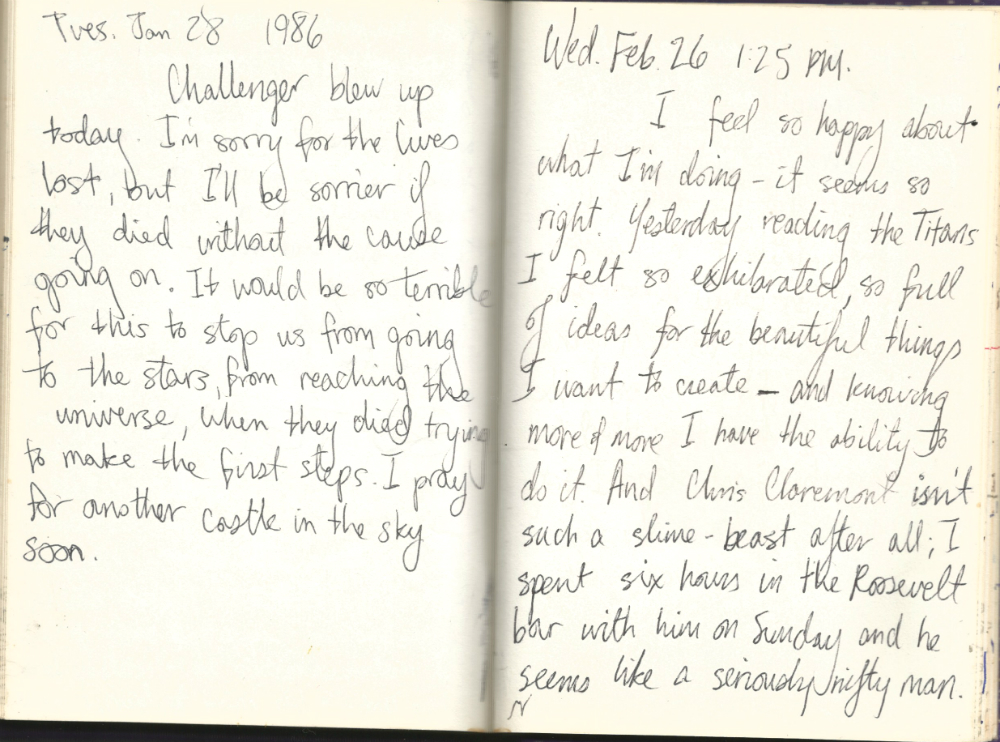 Tues. Jan 28 1986
Challenger blew up
today. I'm sorry for the lives
lost, but I'll be sorrier if
they died without the cause
going on. It would be so terrible
for this to stop us from going
to the stars, from reaching the
universe, when they died trying
to make the first steps. I pray
for another castle in the sky
soon.
Wed. Feb. 26 1:25 PM.
I feel so happy about
what I'm doing - it seems so
right. Yesterday reading the Titans
I felt so exhilarated, so full
of ideas for the beautiful things
I want to create — and knowing
more & more I have the ability to
do it. And Chris Claremont isn't
such a slime-beast after all; I
spent six hours in the Roosevelt
bar with him on Sunday and he
seems like a seriously nifty man.
N